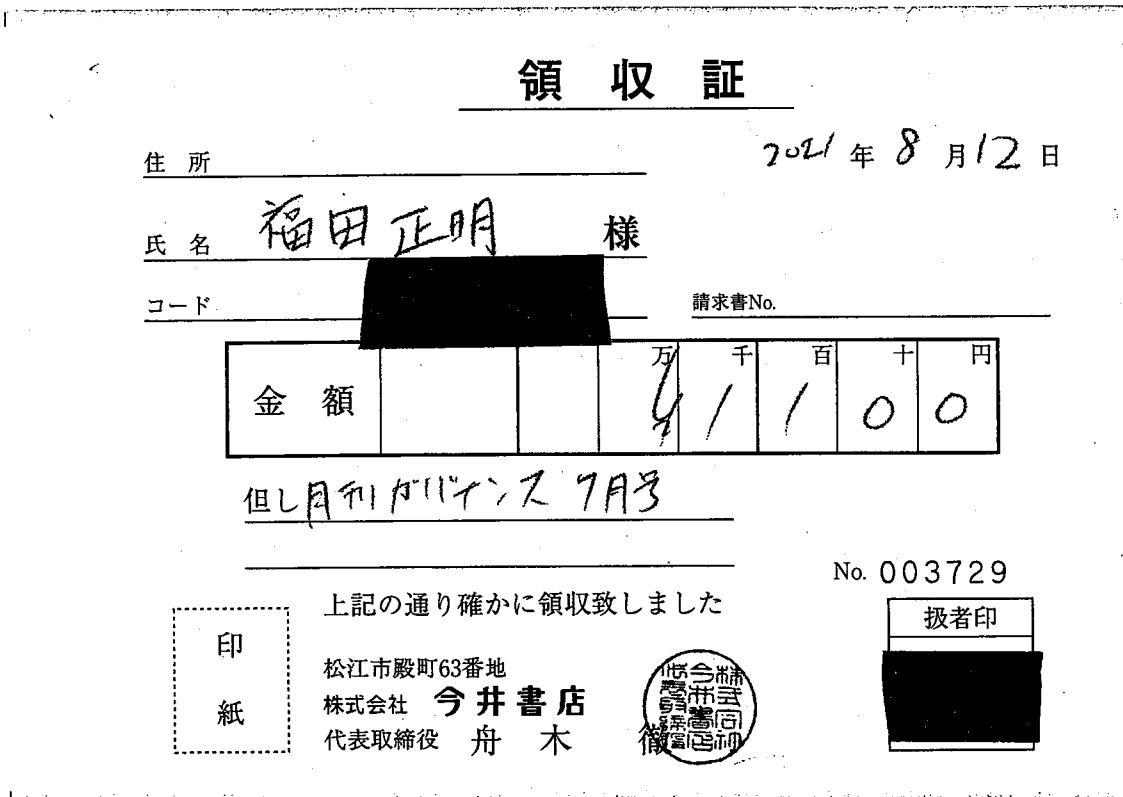 領収証
2021年8月12日
住所
氏名 福田正明 様
コード
請求書No.
金額 万 千 百 十 円
¥1100
但し 月刊ガバナンス 7月号
No. 003729
上記の通り確かに領収致しました
扱者印
印紙
松江市殿町63番地
株式会社 今井書店
代表取締役 舟木 徹